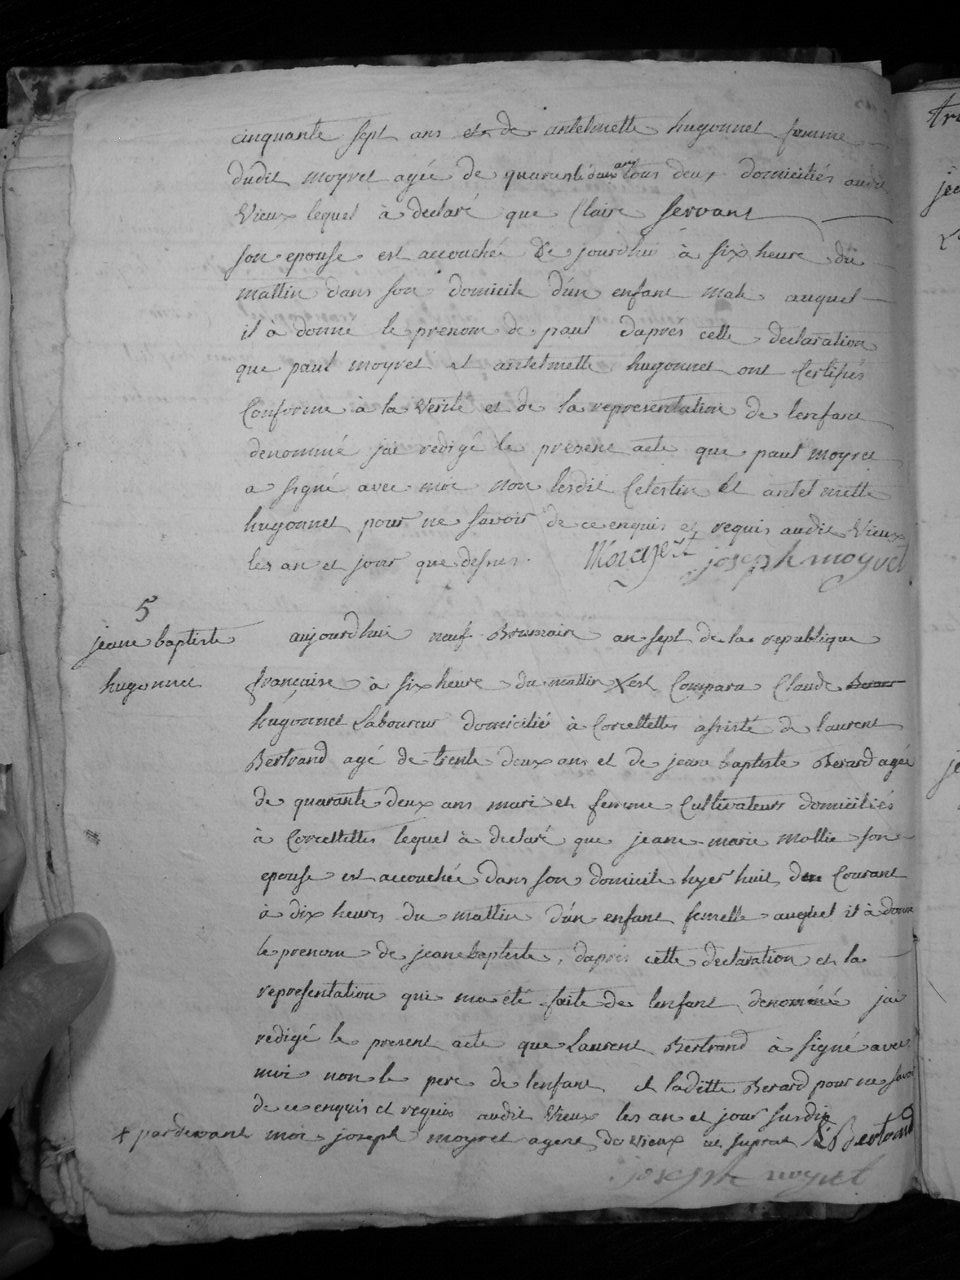 cinquante sept ans et de antelmette hugonnet femme
dudit moyret agée de quarante deux ans tous deux domiciliés audit
Vieux lequel à declaré que Claire Servant
son epouse est accouchée de jourdhui à six heure du
mattin dans son domicile d'un enfant male auquel
il à donné le prenom de paul d'aprés cette declaration
que paul moyret et antelmette hugonnet ont Certifiés
Conforme à la Verité et de la representation de lenfant
denommé jai redigé le present acte que paul moyret
a signé avec moi non lesdit Celestin et antelmette
hugonnet pour ne savoir de ce enquis et requis audit Vieux
les an et jour que dessus.
Moiret joseph moyret
5
jeane baptiste
hugonnet
aujourdhui neuf Brumair an sept de la republique
française à six heure du mattin x est Comparu Claude
hugonnet Laboureur domicilié à Corcelettes assisté de laurent
Bertrand agé de trente deux ans et de jeane baptiste Berard agée
de quarante deux ans mari et femme Cultivateurs domiciliés
à Corcelettes lequel à declaré que jeane marie mollie son
epouse est accouchée dans son domicile hyer huit du Courant
à dix heures du mattin d'un enfant femelle auquel il à donné
le prenom de jeane baptiste, d'aprés cette declaration et la
representation qui ma été faite de lenfant denommé jai
redigé le present acte que Laurent Bertrand à signé avec
moi non le pere de lenfant et laditte Berard pour ne savoir
de ce enquis et requis audit Vieux les an et jour susdit
x pardevant moi joseph moyret agent de Vieux
L Bertrand
joseph moyret